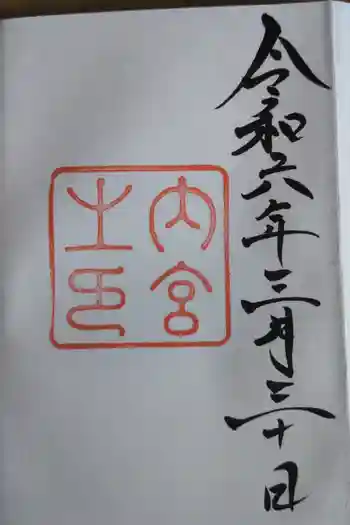 令和六年三月三十日
内宮
之印